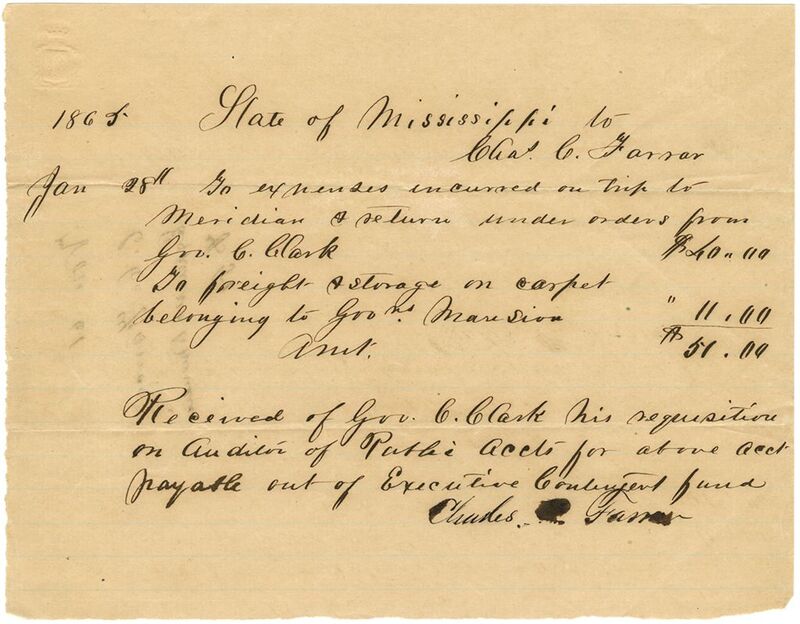 1865 State of Mississippi to
Chas. C. Farrar
Jan 28th To expenses incurred on trip to
Meridian & return under orders from
Gov. C. Clark $40.00
To freight & storage on carpet
belonging to Govns. Mansion " 11.00
Amt. $51.00
Received of Gov. C. Clark his requisition
on Auditor of Public Accts for above acct
payable out of Executive Contingent fund
Charles C Farrar